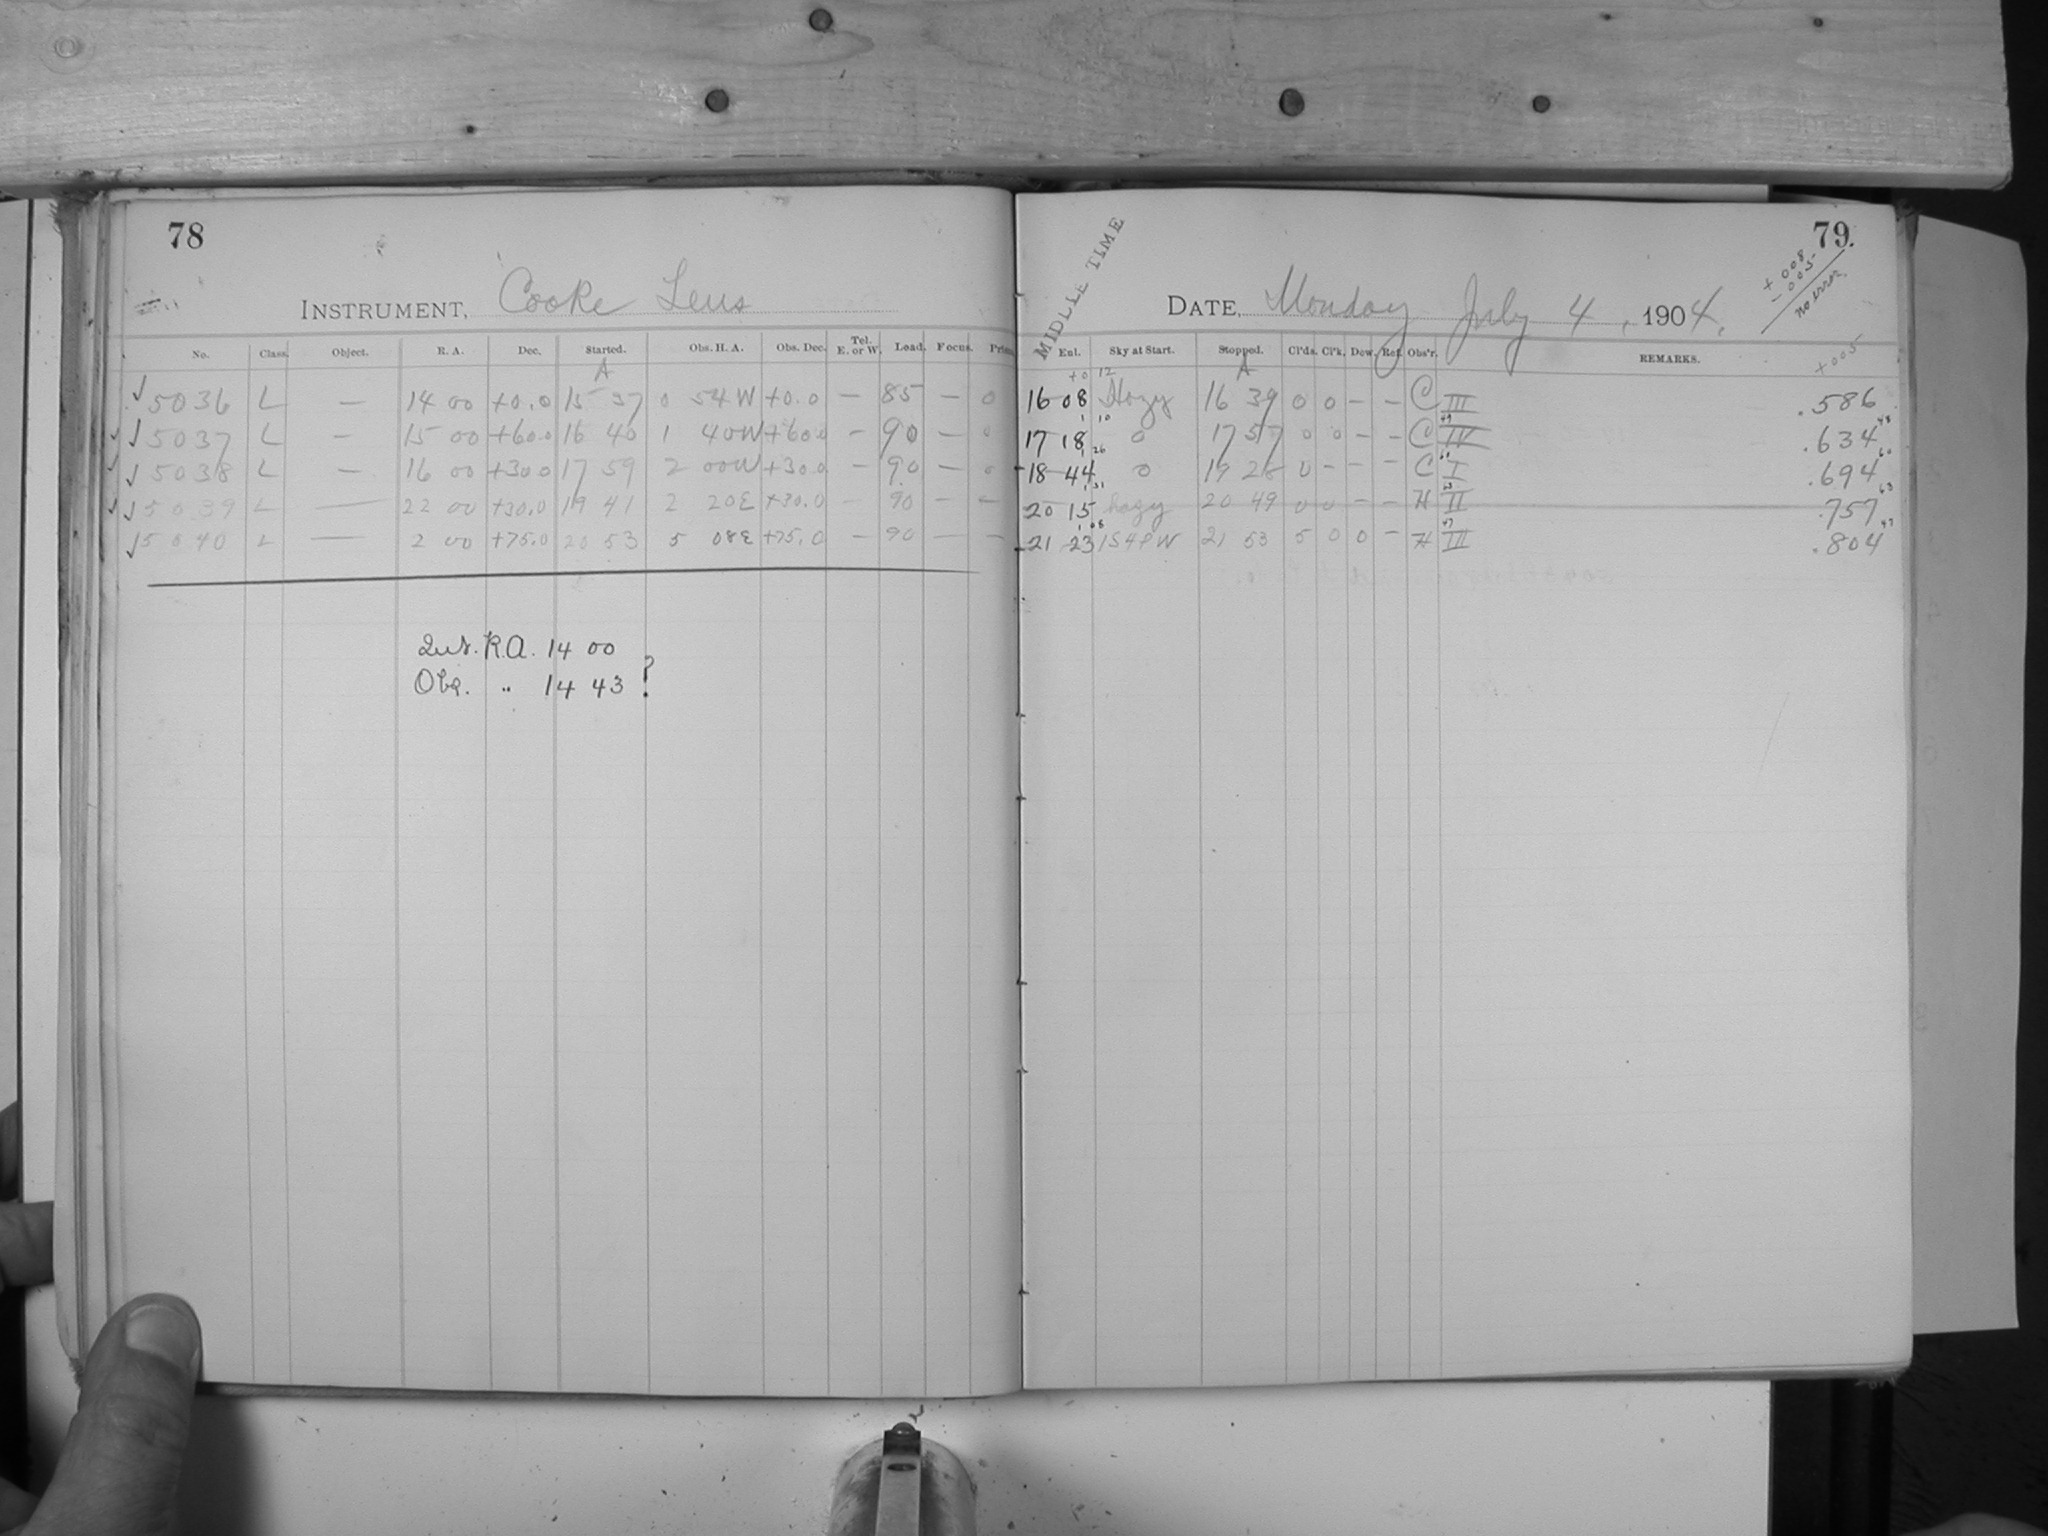 78
INSTRUMENT, Cooke Lens
No. Class. Object. R. A. Dec. Started. Obs. H. A. Obs. Dec. Tel. E. or W. Load. Focus. Prism.
A
5036 L — 14 00 +0.0 15 37 0 54W +0.0 — 85 — 0
5037 L — 15 00 +60.0 16 40 1 40W +60.0 — 90 — 0
5038 L — 16 00 +30.0 17 59 2 00W +30.0 — 90 — 0
5039 L — 22 00 +30.0 19 41 2 20E +30.0 — 90 — —
5040 L — 2 00 +75.0 20 53 5 08E +75.0 — 90 — —
R.A. 14 00
Obs. " 14 43 ?
79.
+.008
-.005
no error.
MIDDLE TIME
DATE, Monday July 4, 1904.
Enl. Sky at Start. Stopped. Cl'ds. Cl'k. Dew. Ref. Obs'r. REMARKS.
+.005
A
16 08 Hazy 16 39 0 0 — — C III .586
17 18 0 17 57 0 0 — — C IV .634 48
18 44 0 19 28 0 — — — C I .694 60
20 15 hazy 20 49 0 0 — — H II .757 63
21 23 1S4PW 21 53 5 0 0 — H III .804 47